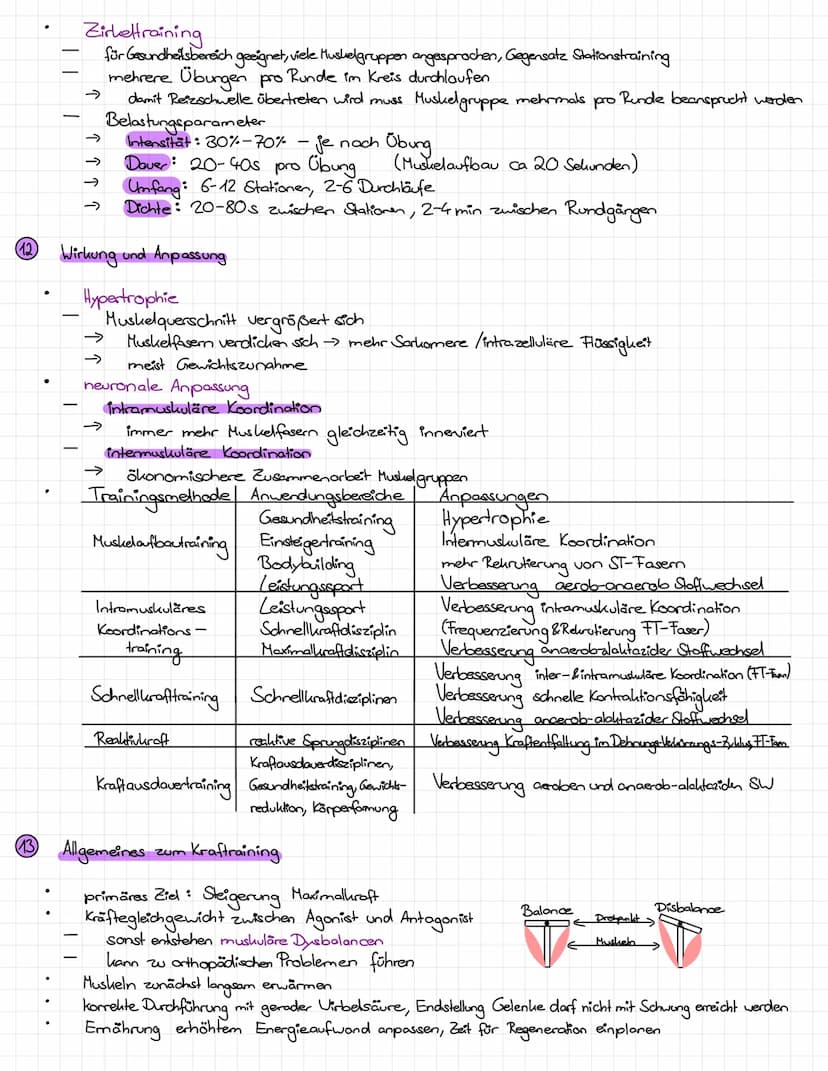 • Zirkeltraining
— für Gesundheitsbereich geeignet, viele Muskelgruppen angesprochen, Gegensatz Stationstraining
— mehrere Übungen pro Runde im Kreis durchlaufen
→ damit Reizschwelle übertreten wird muss Muskelgruppe mehrmals pro Runde beansprucht werden
— Belastungsparameter
→ Intensität: 30%-70% - je nach Übung
→ Dauer: 20-40s pro Übung (Muskelaufbau ca 20 Sekunden)
→ Umfang: 6-12 Stationen, 2-6 Durchläufe
→ Dichte: 20-80s zwischen Stationen, 2-4min zwischen Rundgängen
12 Wirkung und Anpassung
• Hypertrophie
— Muskelquerschnitt vergrößert sich
→ Muskelfasern verdicken sich → mehr Sarkomere/intrazelluläre Flüssigkeit
→ meist Gewichtszunahme
• neuronale Anpassung
— intramuskuläre Koordination
→ immer mehr Muskelfasern gleichzeitig inneviert
— intermuskuläre Koordination
→ ökonomischere Zusammenarbeit Muskelgruppen
• Trainingsmethode Anwendungsbereiche Anpassungen
Muskelaufbautraining
Gesundheitstraining
Einsteigertraining
Bodybuilding
Leistungssport
Hypertrophie
Intermuskuläre Koordination
mehr Rekrutierung von ST-Fasern
Verbesserung aerob-anaerob Stoffwechsel
Intramuskuläres
Koordinations-
training
Leistungssport
Schnellkraftdisziplin
Maximalkraftdisziplin
Verbesserung intramuskuläre Koordination
(Frequenzierung & Rekrutierung FT-Faser)
Verbesserung anaerob-alaktazider Stoffwechsel
Schnellkrafttraining
Schnellkraftdisziplinen
Verbesserung inter- & intramuskuläre Koordination (FT-Fasern)
Verbesserung schnelle Kontraktionsfähigkeit
Verbesserung anaerob-alaktazider Stoffwechsel
Reaktivkraft
reaktive Sprungdisziplinen
Verbesserung Kraftentfaltung im Dehnungs-Verkürzungs-Zyklus, FT-Fasern
Kraftausdauertraining
Kraftausdauerdisziplinen,
Gesundheitstraining, Gewichts-
reduktion, Körperformung
Verbesserung aeroben und anaerob-alaktaziden SW
13 Allgemeines zum Kraftraining
• primäres Ziel: Steigerung Maximalkraft
• Kräftegleichgewicht zwischen Agonist und Antagonist
— sonst entstehen muskuläre Dysbalancen
— kann zu orthopädischen Problemen führen
Balance Disbalance
Drehpunkt
Muskeln
• Muskeln zunächst langsam erwärmen
• korrekte Durchführung mit gerader Wirbelsäure, Endstellung Gelenke darf nicht mit Schwung erreicht werden
• Ernährung erhöhtem Energieaufwand anpassen, Zeit für Regeneration einplanen